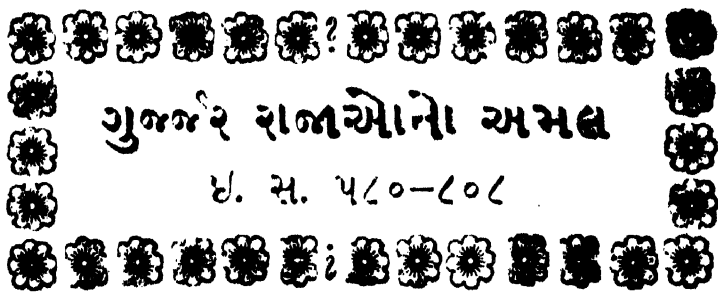 ગુર્જ્જર રાજાઓનો અમલ
ઇ. સ. ૫૮૦—૮૦૮